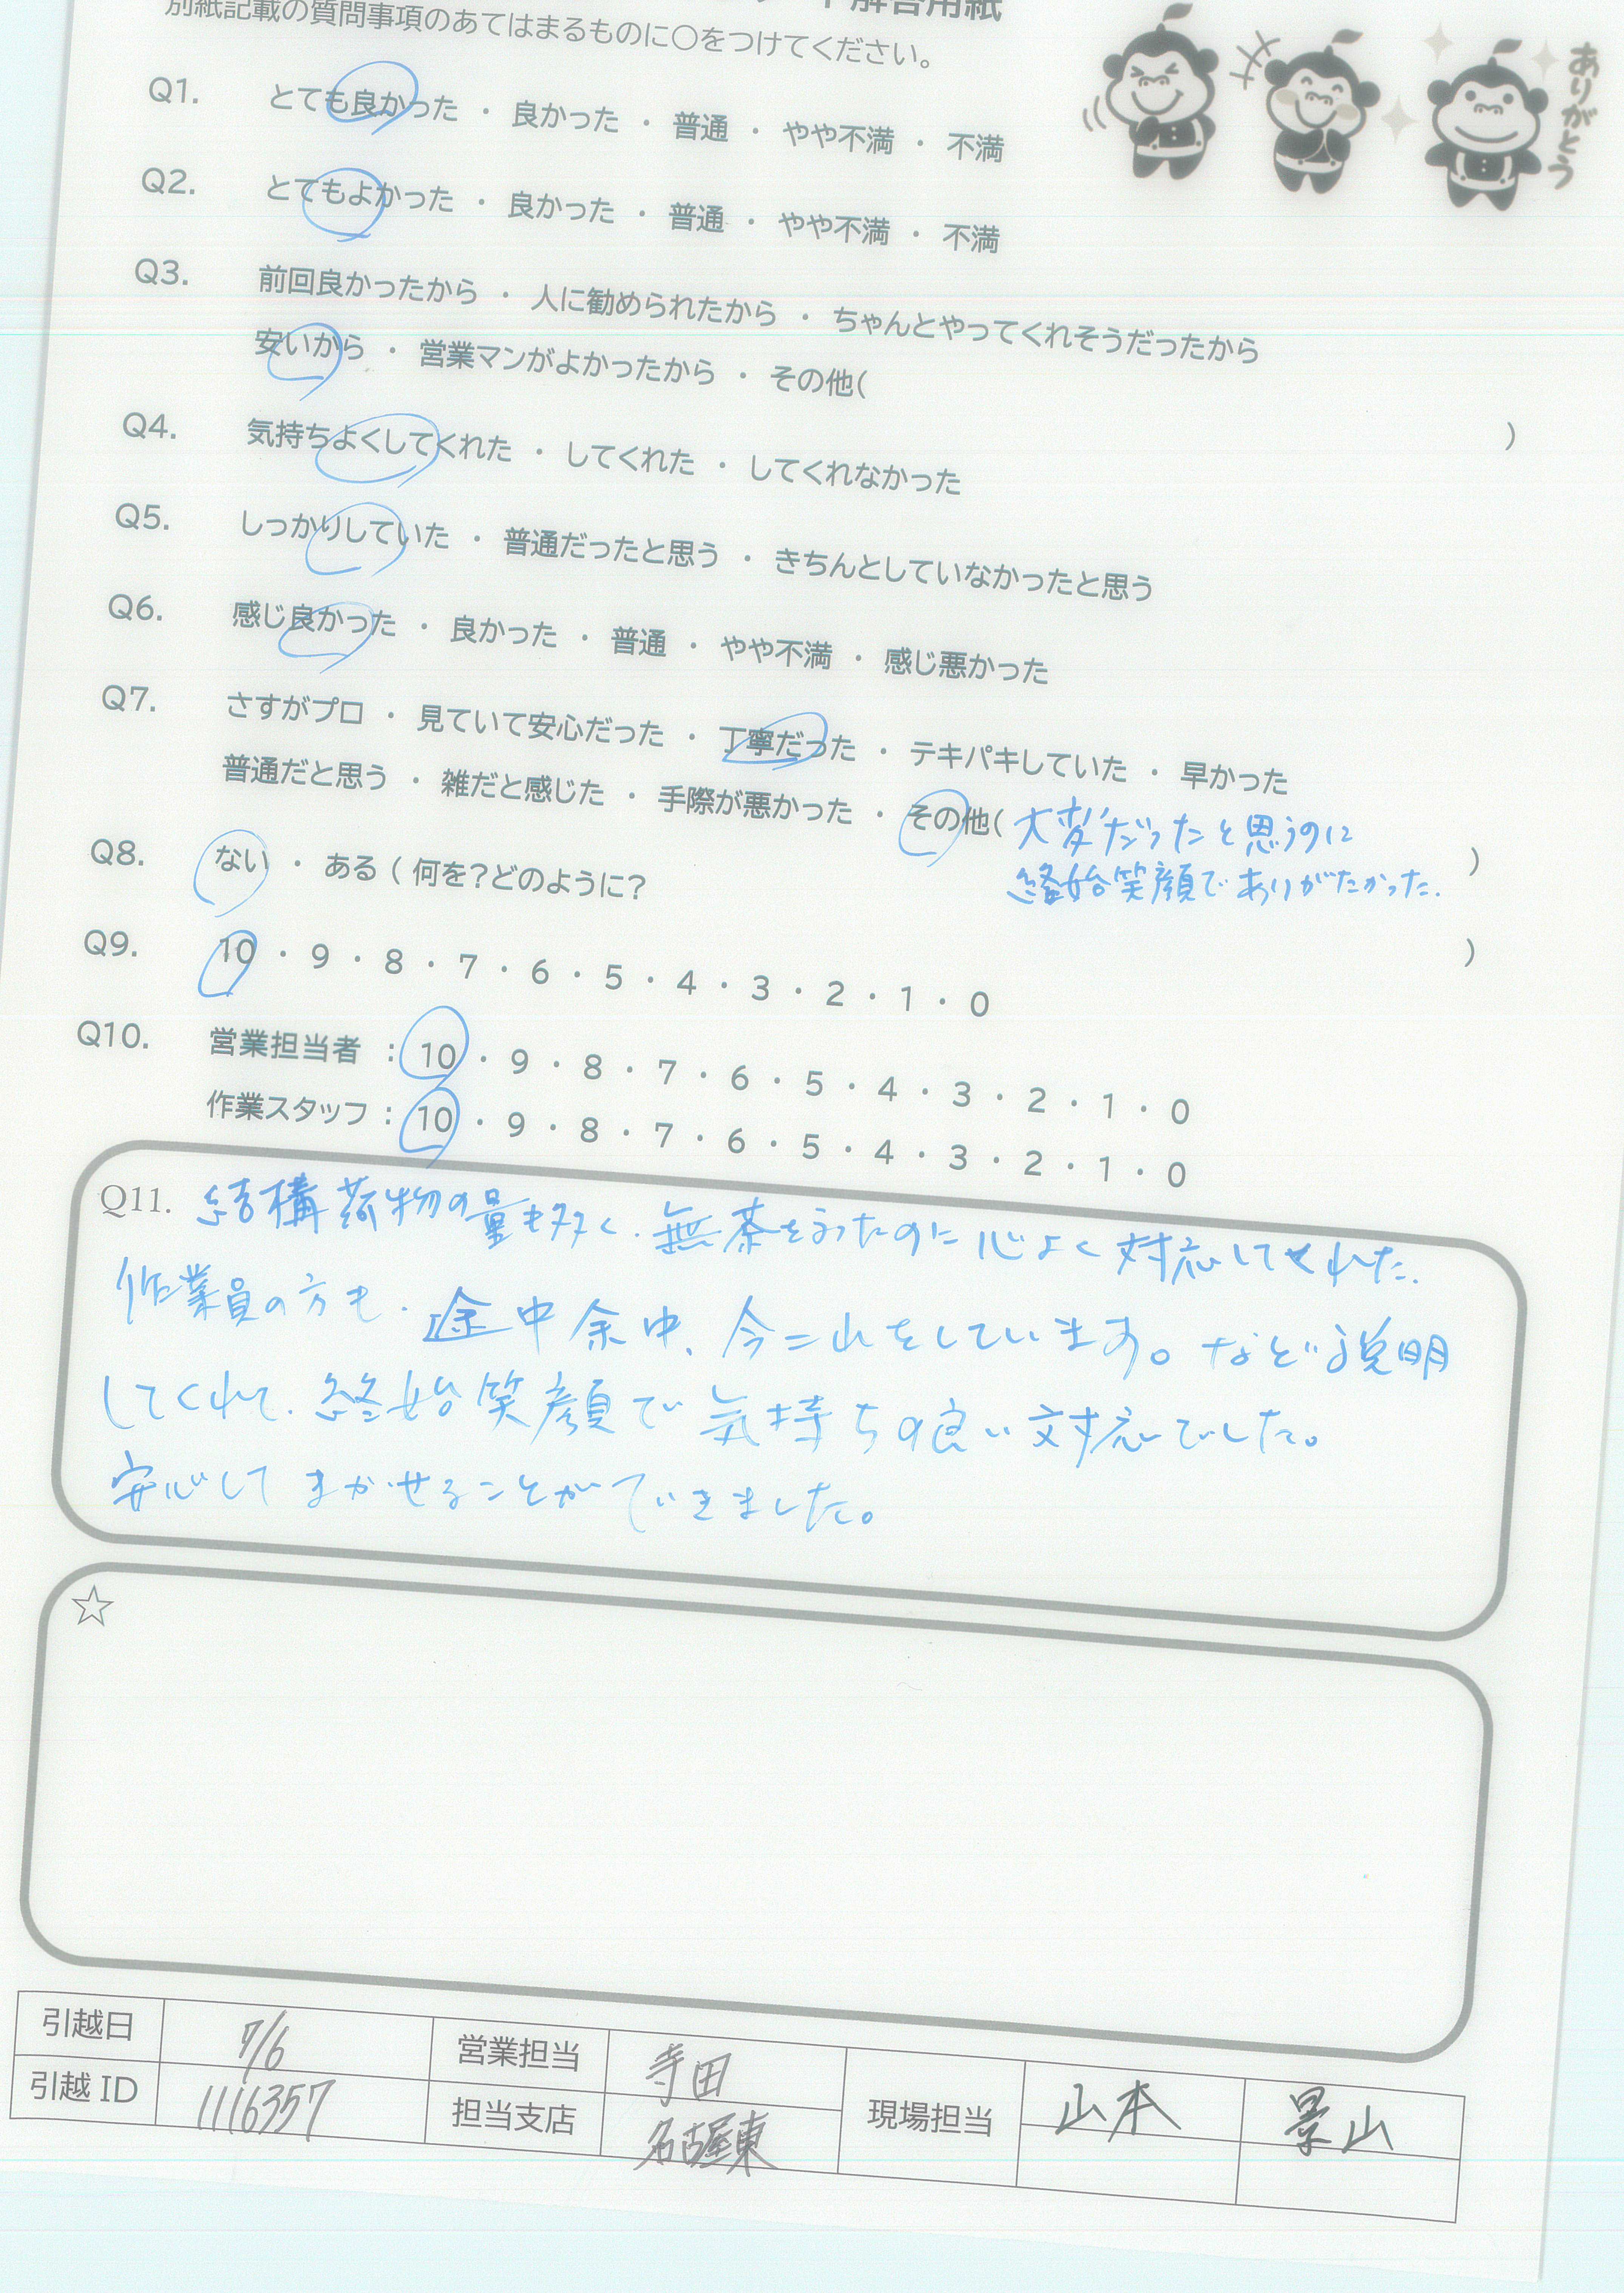 解答用紙
別紙記載の質問事項のあてはまるものに○をつけてください。
ありがとう
Q1. とても良かった ・ 良かった ・ 普通 ・ やや不満 ・ 不満
Q2. とてもよかった ・ 良かった ・ 普通 ・ やや不満 ・ 不満
Q3. 前回良かったから ・ 人に勧められたから ・ ちゃんとやってくれそうだったから
安いから ・ 営業マンがよかったから ・ その他( )
Q4. 気持ちよくしてくれた ・ してくれた ・ してくれなかった
Q5. しっかりしていた ・ 普通だったと思う ・ きちんとしていなかったと思う
Q6. 感じ良かった ・ 良かった ・ 普通 ・ やや不満 ・ 感じ悪かった
Q7. さすがプロ ・ 見ていて安心だった ・ 丁寧だった ・ テキパキしていた ・ 早かった
普通だと思う ・ 雑だと感じた ・ 手際が悪かった ・ その他( 大変だったと思うのに
終始笑顔でありがたかった. )
Q8. ない ・ ある ( 何を?どのように? )
Q9. 10 ・ 9 ・ 8 ・ 7 ・ 6 ・ 5 ・ 4 ・ 3 ・ 2 ・ 1 ・ 0
Q10. 営業担当者 : 10 ・ 9 ・ 8 ・ 7 ・ 6 ・ 5 ・ 4 ・ 3 ・ 2 ・ 1 ・ 0
作業スタッフ : 10 ・ 9 ・ 8 ・ 7 ・ 6 ・ 5 ・ 4 ・ 3 ・ 2 ・ 1 ・ 0
Q11. 結構荷物の量も多く、無茶を言ったのに心よく対応してくれた.
作業員の方も、途中余中、今これをしています。など説明
してくれて、終始笑顔で気持ちの良い対応でした。
安心してまかせることができました。
☆
引越日 7/6 営業担当 寺田 現場担当 山本 景山
引越 ID 1116357 担当支店 名古屋東